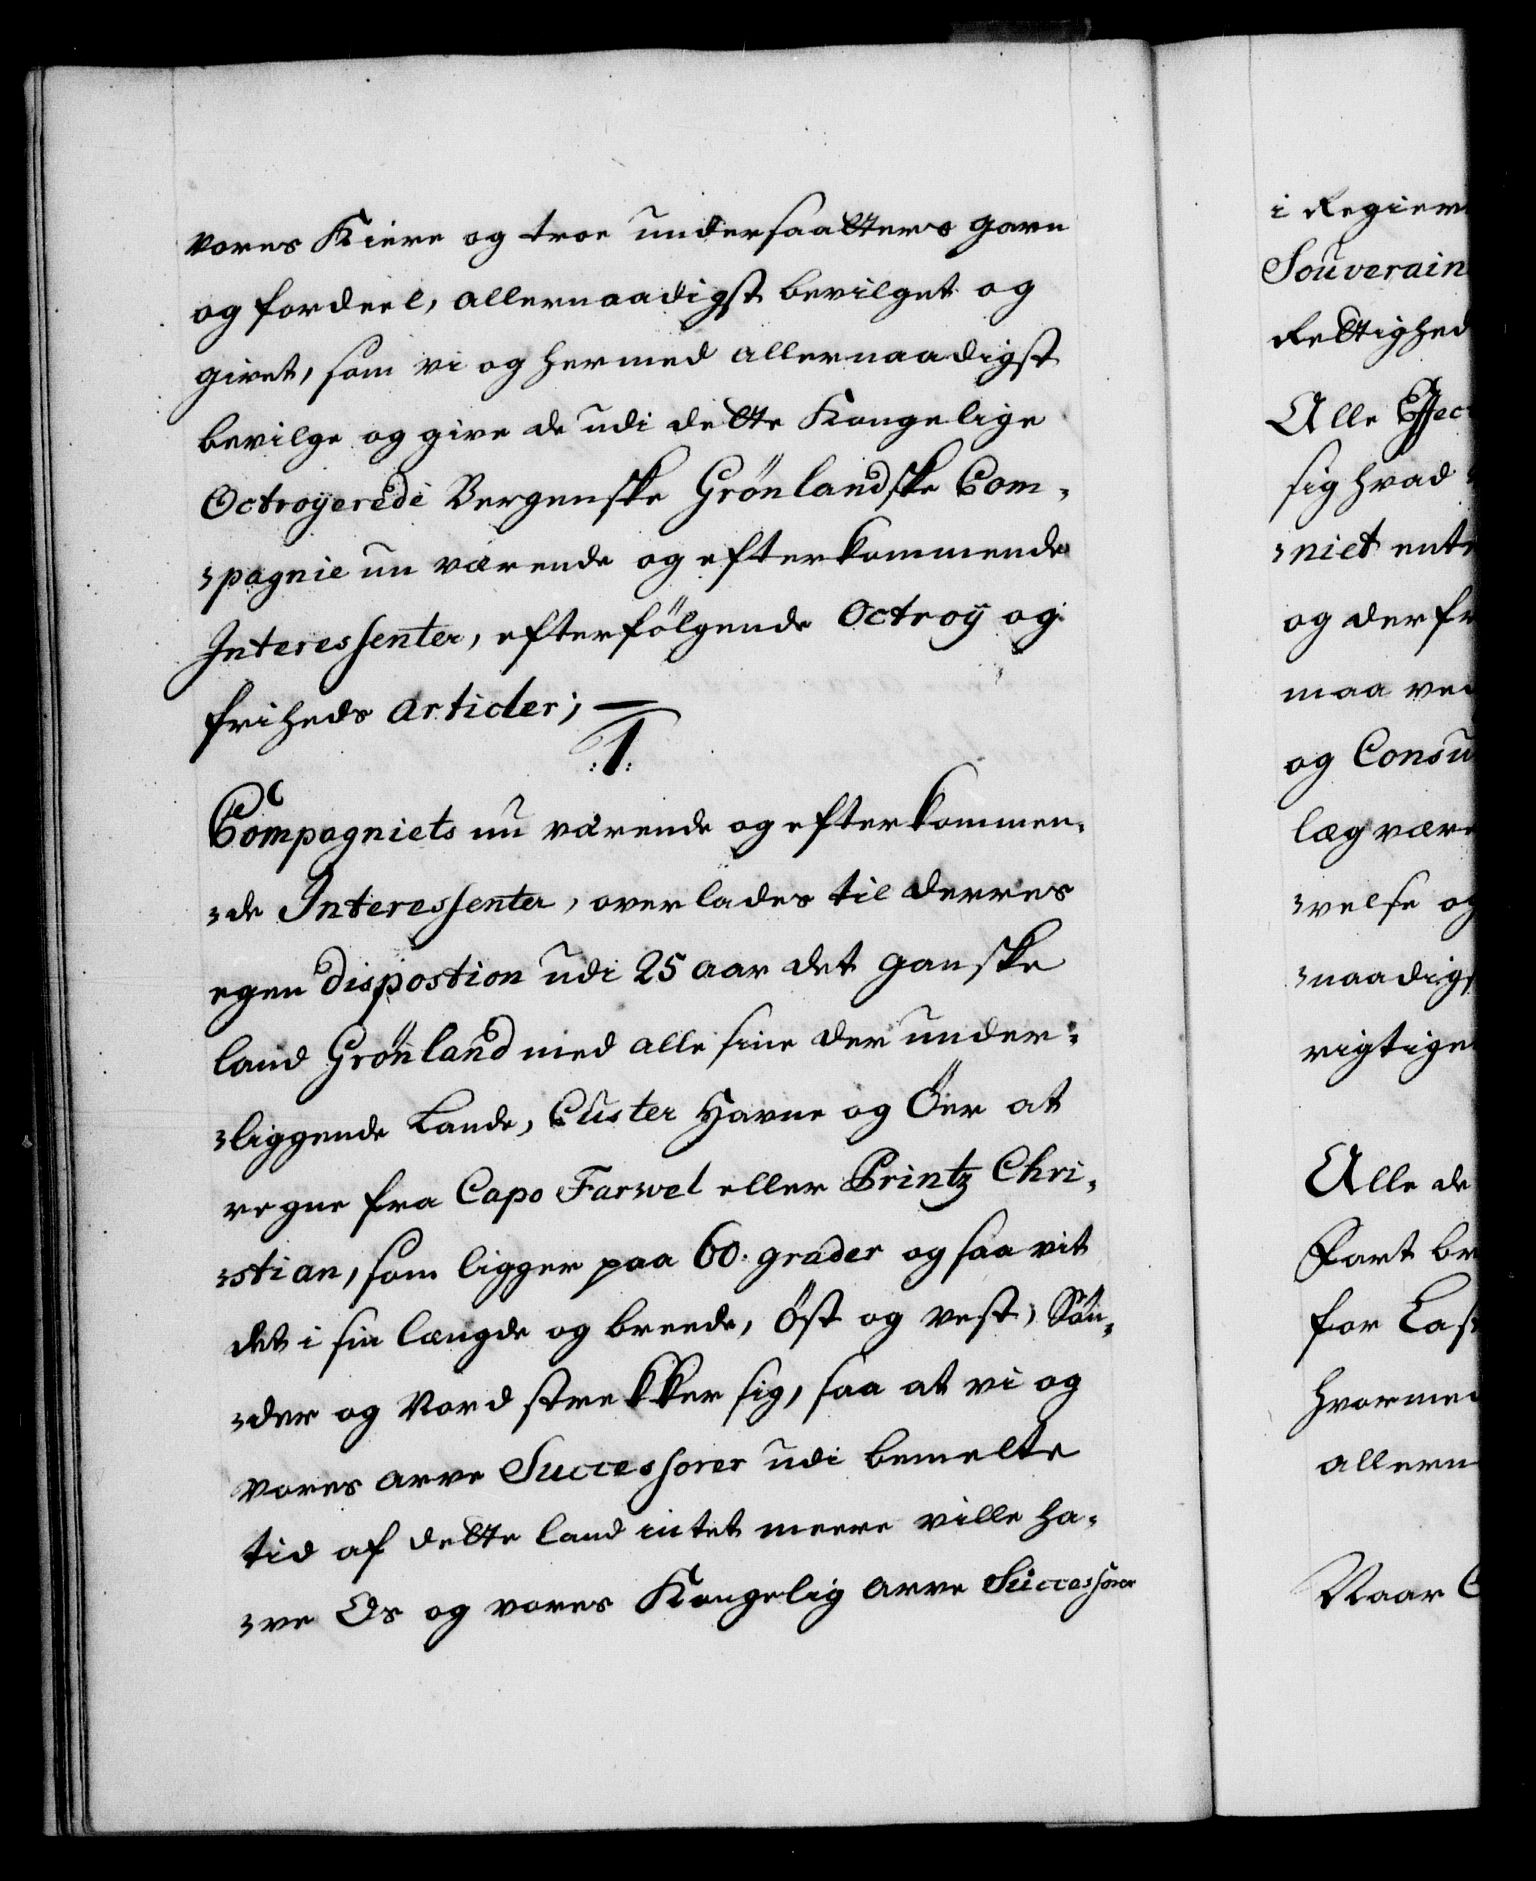 vores Kiere og troe undersaatters gavn
og fordeel, allernaadigst bevilget og
givet, som vi og hermed allernaadigst
bevilge og give de udi dette Kongelige
Octroyerede Bergenske Grönlandske Com-
-pagnie nu værende og efterkommende
Interessenter, efterfölgende Octroy og
friheds Articler; —
:1:
Compagniets nu værende og efterkommen-
-de Interessenter, overlades til derres
egen dispostion udi 25 aar det ganske
land Grönland med alle sine der under-
-liggende Lande, Custer Havne og Öer at
regne fra Capo Farwel eller Printz Chri-
-stian, som ligger paa 60. grader og saa vit
det i sin længde og breede, öst og vest, Sön-
-der og Nord strekker sig, saa at vi og
vores arve Successorer udi bemelte
tid af dette land intet meere ville ha-
-ve Os og vores Kongelig arve Successorer
i Regier
Souverain
Rettighed
Alle Effec
sig hvad
-niet ent
og der fr
maa ve
og Consu
læg være
-velse og
-naadigs
rigtige
Alle de
Fart br
for Las
hvormed
allern
Naar C